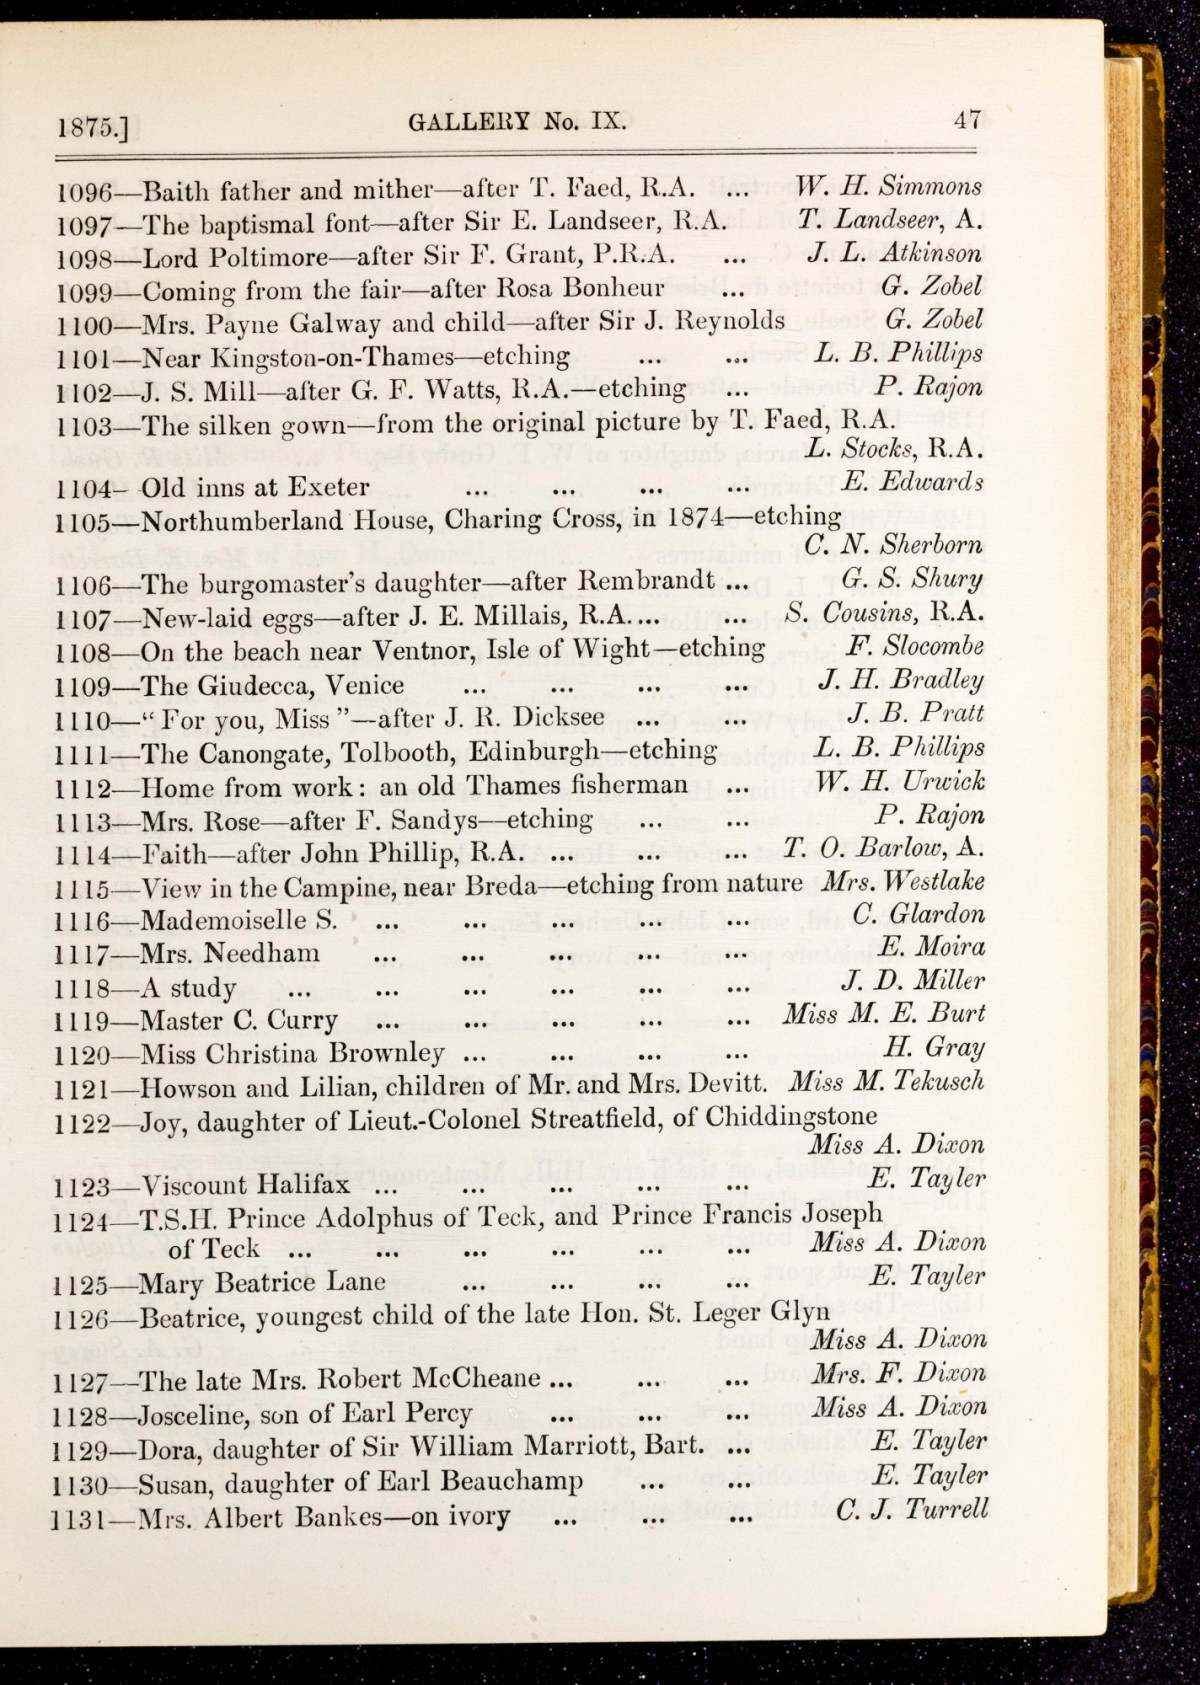 1875.] GALLERY No. IX. 47
1096—Baith father and mither—after T. Faed, R.A. ... W. H. Simmons
1097—The baptismal font—after Sir E. Landseer, R.A. T. Landseer, A.
1098—Lord Poltimore—after Sir F. Grant, P.R.A. ... J. L. Atkinson
1099—Coming from the fair—after Rosa Bonheur ... G. Zobel
1100—Mrs. Payne Galway and child—after Sir J. Reynolds G. Zobel
1101—Near Kingston-on-Thames—etching ... ... L. B. Phillips
1102—J. S. Mill—after G. F. Watts, R.A.—etching ... P. Rajon
1103—The silken gown—from the original picture by T. Faed, R.A.
L. Stocks, R.A.
1104- Old inns at Exeter ... ... ... ... E. Edwards
1105—Northumberland House, Charing Cross, in 1874—etching
C. N. Sherborn
1106—The burgomaster's daughter—after Rembrandt ... G. S. Shury
1107—New-laid eggs—after J. E. Millais, R.A.... ... S. Cousins, R.A.
1108—On the beach near Ventnor, Isle of Wight—etching F. Slocombe
1109—The Giudecca, Venice ... ... ... ... J. H. Bradley
1110—“ For you, Miss ”—after J. R. Dicksee ... ... J. B. Pratt
1111—The Canongate, Tolbooth, Edinburgh—etching L. B. Phillips
1112—Home from work: an old Thames fisherman ... W. H. Urwick
1113—Mrs. Rose—after F. Sandys—etching ... ... P. Rajon
1114—Faith—after John Phillip, R.A. ... ... ... T. O. Barlow, A.
1115—View in the Campine, near Breda—etching from nature Mrs. Westlake
1116—Mademoiselle S. ... ... ... ... ... C. Glardon
1117—Mrs. Needham ... ... ... ... ... E. Moira
1118—A study ... ... ... ... ... ... J. D. Miller
1119—Master C. Curry ... ... ... ... ... Miss M. E. Burt
1120—Miss Christina Brownley ... ... ... ... H. Gray
1121—Howson and Lilian, children of Mr. and Mrs. Devitt. Miss M. Tekusch
1122—Joy, daughter of Lieut.-Colonel Streatfield, of Chiddingstone
Miss A. Dixon
1123—Viscount Halifax ... ... ... ... ... E. Tayler
1124—T.S.H. Prince Adolphus of Teck, and Prince Francis Joseph
of Teck ... ... ... ... ... ... Miss A. Dixon
1125—Mary Beatrice Lane ... ... ... ... E. Tayler
1126—Beatrice, youngest child of the late Hon. St. Leger Glyn
Miss A. Dixon
1127—The late Mrs. Robert McCheane ... ... ... Mrs. F. Dixon
1128—Josceline, son of Earl Percy ... ... ... Miss A. Dixon
1129—Dora, daughter of Sir William Marriott, Bart. ... E. Tayler
1130—Susan, daughter of Earl Beauchamp ... ... E. Tayler
1131—Mrs. Albert Bankes—on ivory ... ... ... C. J. Turrell